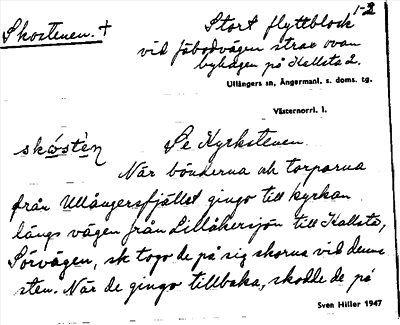 Skostenen. +
1-2
Stort flyttblock
vid fäbodvägen strax ovan
byhägen på Kallsta 2.
Ullångers sn, Ångermanl. s. doms. tg.
Västernorrl. l.
skóstèn̥
Se Kyrkstenen.
När bönderna och torparna
från Ullångersfjället gingo till kyrkan
längs vägen från Lillåkersjön till Kallsta,
Sörvägen, sk togo de på sig skorna vid denna
sten. När de gingo tillbaka, skodde de på
Sven Hiller 1947